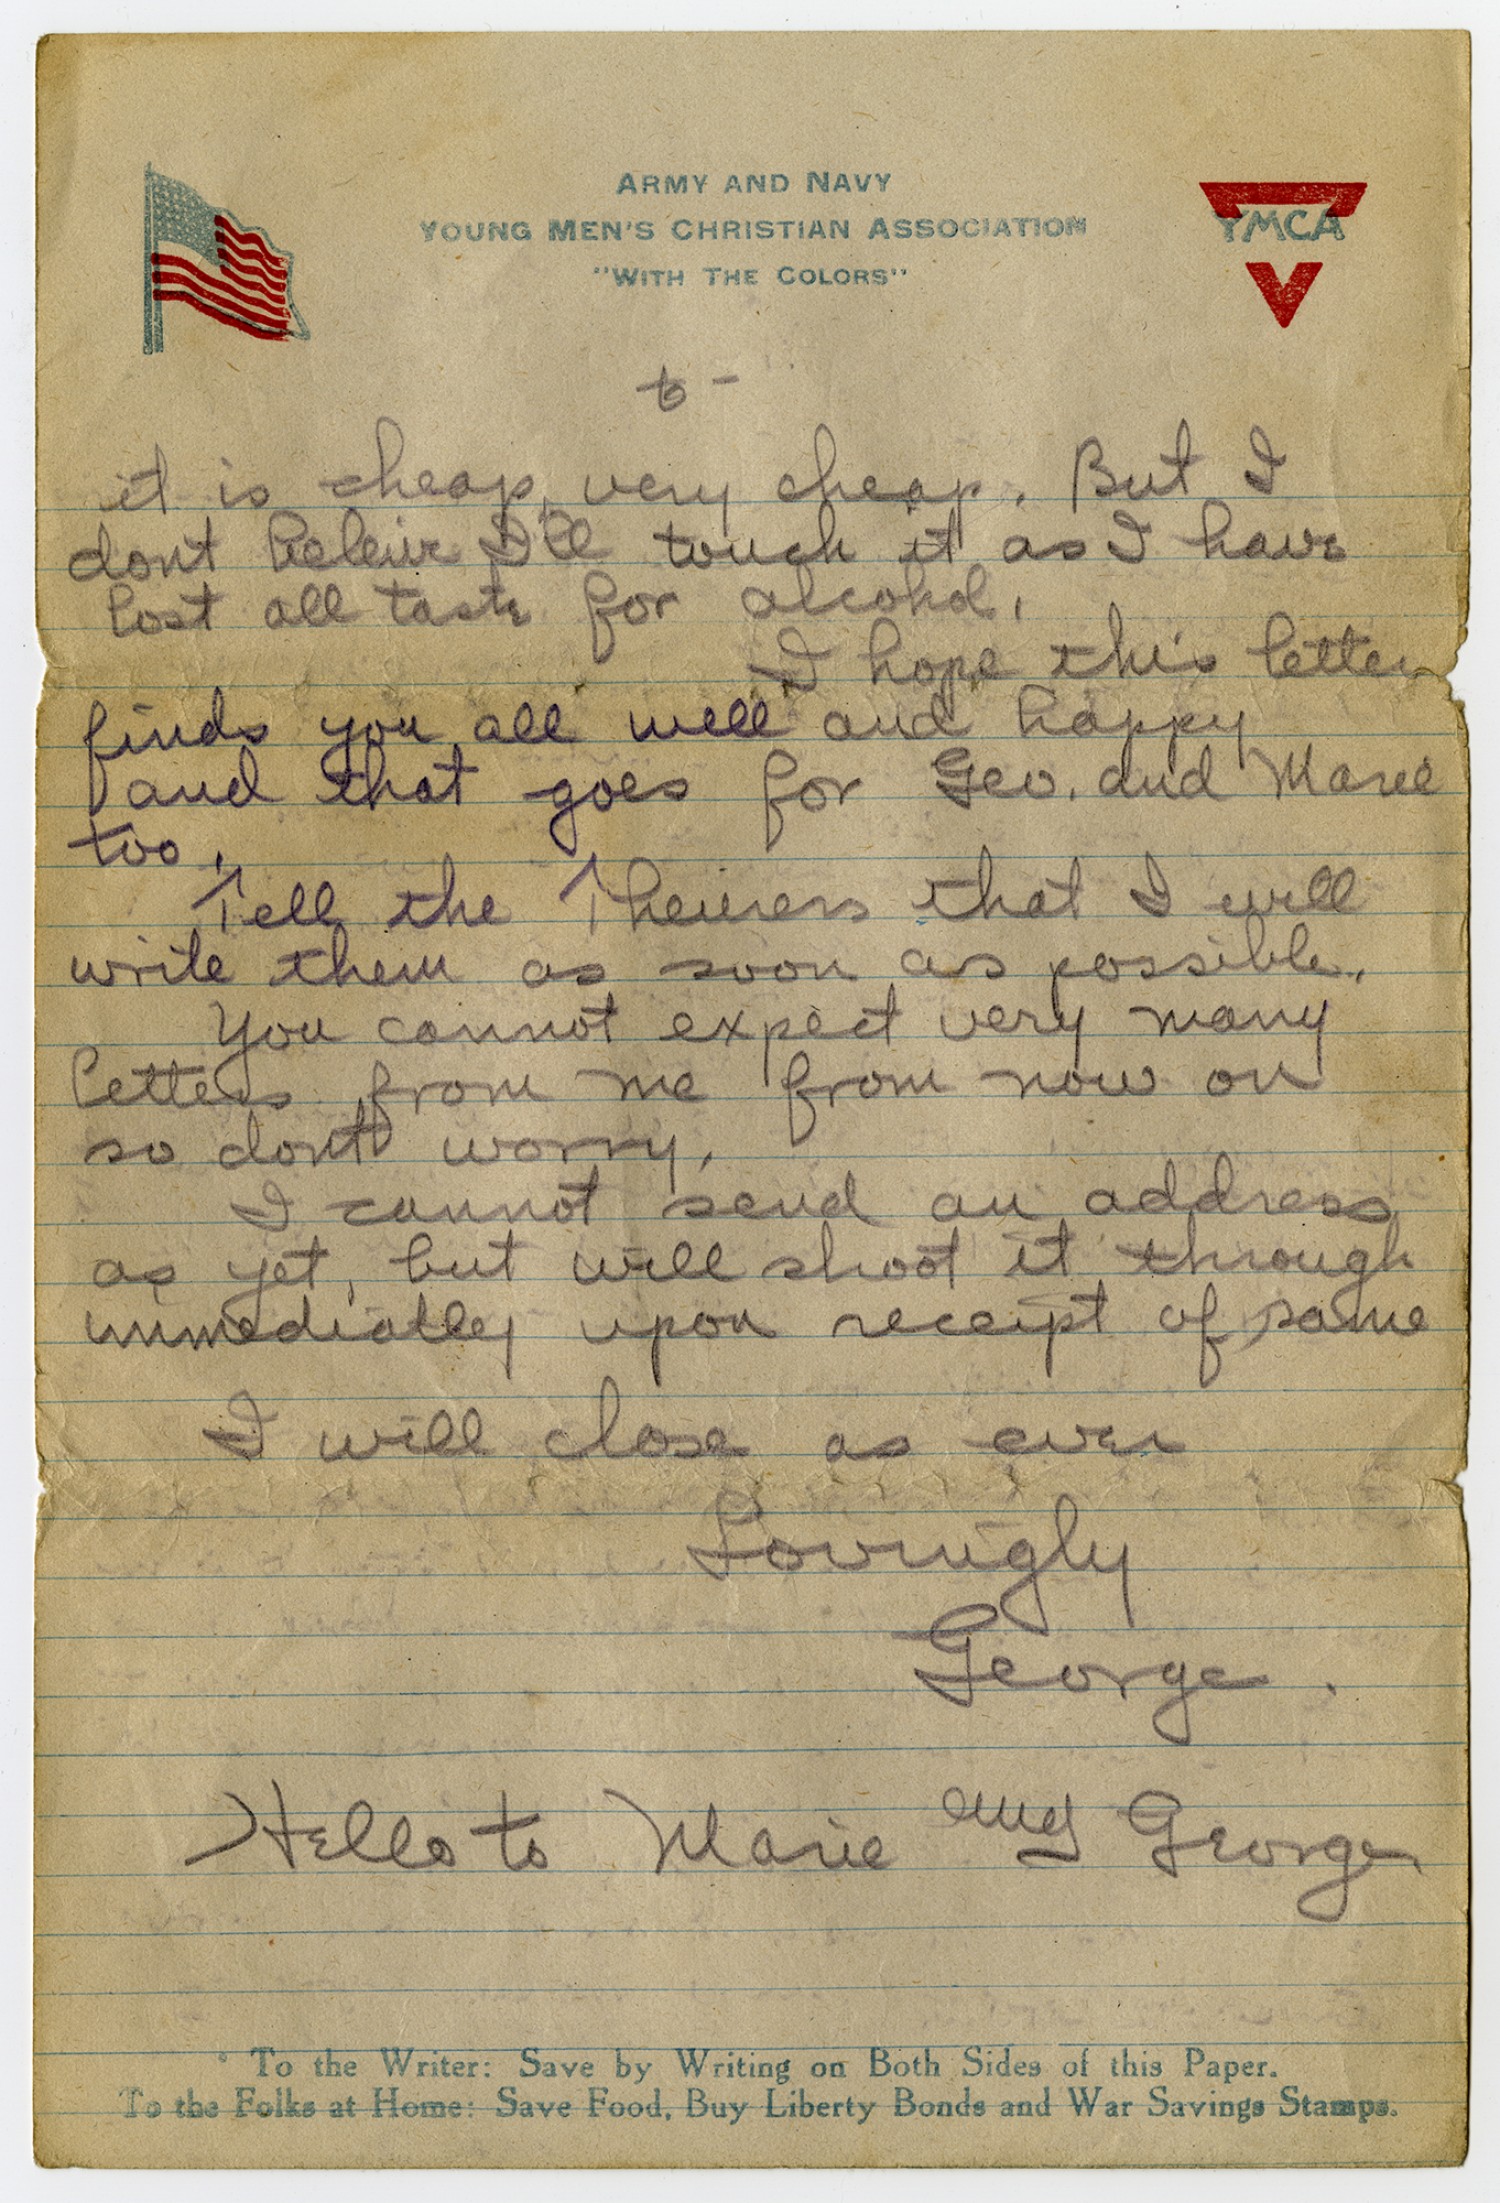 ARMY AND NAVY
YOUNG MEN'S CHRISTIAN ASSOCIATION
"WITH THE COLORS"
YMCA
6 -
it is cheap, very cheap. But I
dont beleive I'll touch it as I have
lost all taste for alcohol.
I hope this letter
finds you all well and happy
and that goes for Geo. and Marie
too.
Tell the that I will
write them as soon as possible.
You cannot expect very many
letters from me from now on
so dont worry.
I cannot send an address
as yet, but will shoot it through
immediatley upon receipt of same
I will close as ever
Lovingly
George.
Hello to Marie and George
To the Writer: Save by Writing on Both Sides of this Paper.
To the Folks at Home: Save Food, Buy Liberty Bonds and War Savings Stamps.